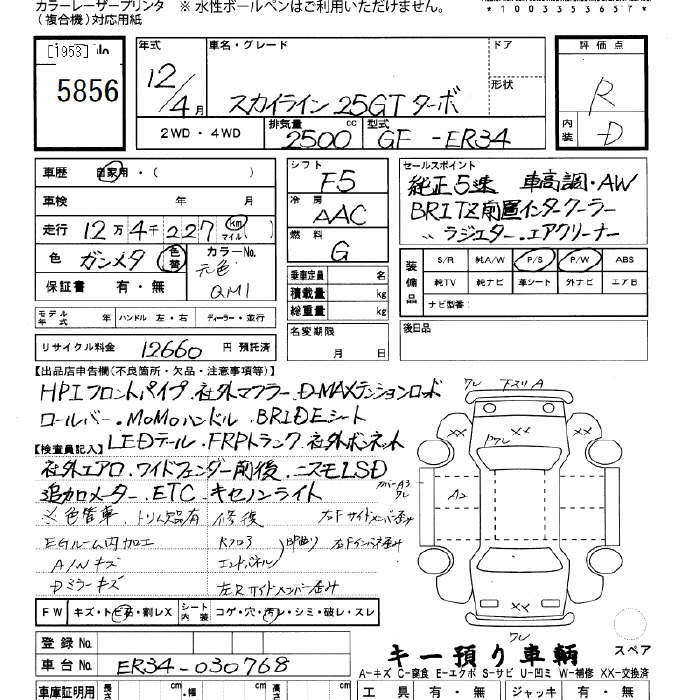 カラーレーザープリンタ ※ 水性ボールペンはご利用いただけません。
(複合機)対応用紙
*1003353657*
5856
年式 12/4月
車名・グレード スカイライン 25GT ターボ
ドア
形状
評価点 R
内装 D
2WD・4WD
排気量 2500 cc
型式 GF-ER34
車歴 自家用・( )
車検 年 月
走行 12万4千227 (km マイル)
色 ガンメタ 色替
カラーNo. 元色 QM1
保証書 有・無
シフト F5
冷房 AAC
燃料 G
乗車定員 名
積載量 kg
総重量 kg
名変期限 月 日
セールスポイント
純正5速 車高調・AW
BRITZ前置インタークーラー
〃 ラジエター・エアクリーナー
装備品
S/R 純A/W P/S P/W ABS
純TV 純ナビ 車シート 外ナビ エアB
ナビ型番:
後日品
モデル年式 年 ハンドル 左・右 ディーラー・並行
リサイクル料金 12660 円 預託済
【出品店申告欄(不良箇所・欠品・注意事項等)】
HPIフロントパイプ.社外マフラー.D-MAXテンションロッド
ロールバー.MoMoハンドル.BRIDEシート
LEDテール.FRPトランク.社外ボンネット
【検査員記入】
社外エアロ.ワイドフェンダー前後.ニスモLSD
追加メーター.ETC.キセノンライト
※色替車.トリム欠品有 修復 右Fサイドメンバー歪み
EGルーム内加工 Rフロア 右Fインパネ歪み
A/Wキズ エンドパネル
Dミラーキズ 左Rサイドメンバー歪み
ワレ 下スリA
XX XX
ワレ
A2
カバーA3
ワレ
XX
ワレ
FW キズ・トビ石・割レX
シート内装 コゲ・穴・汚レ・シミ・破レ・スレ
登録No.
車台No. ER34-030768
キー預り車輌
スペア
A-キズ C-腐食 E-エクボ S-サビ U-凹ミ W-補修 XX-交換済
車庫証明用 長さ cm ・幅 cm 高さ cm
工具 有・無 ジャッキ 有・無